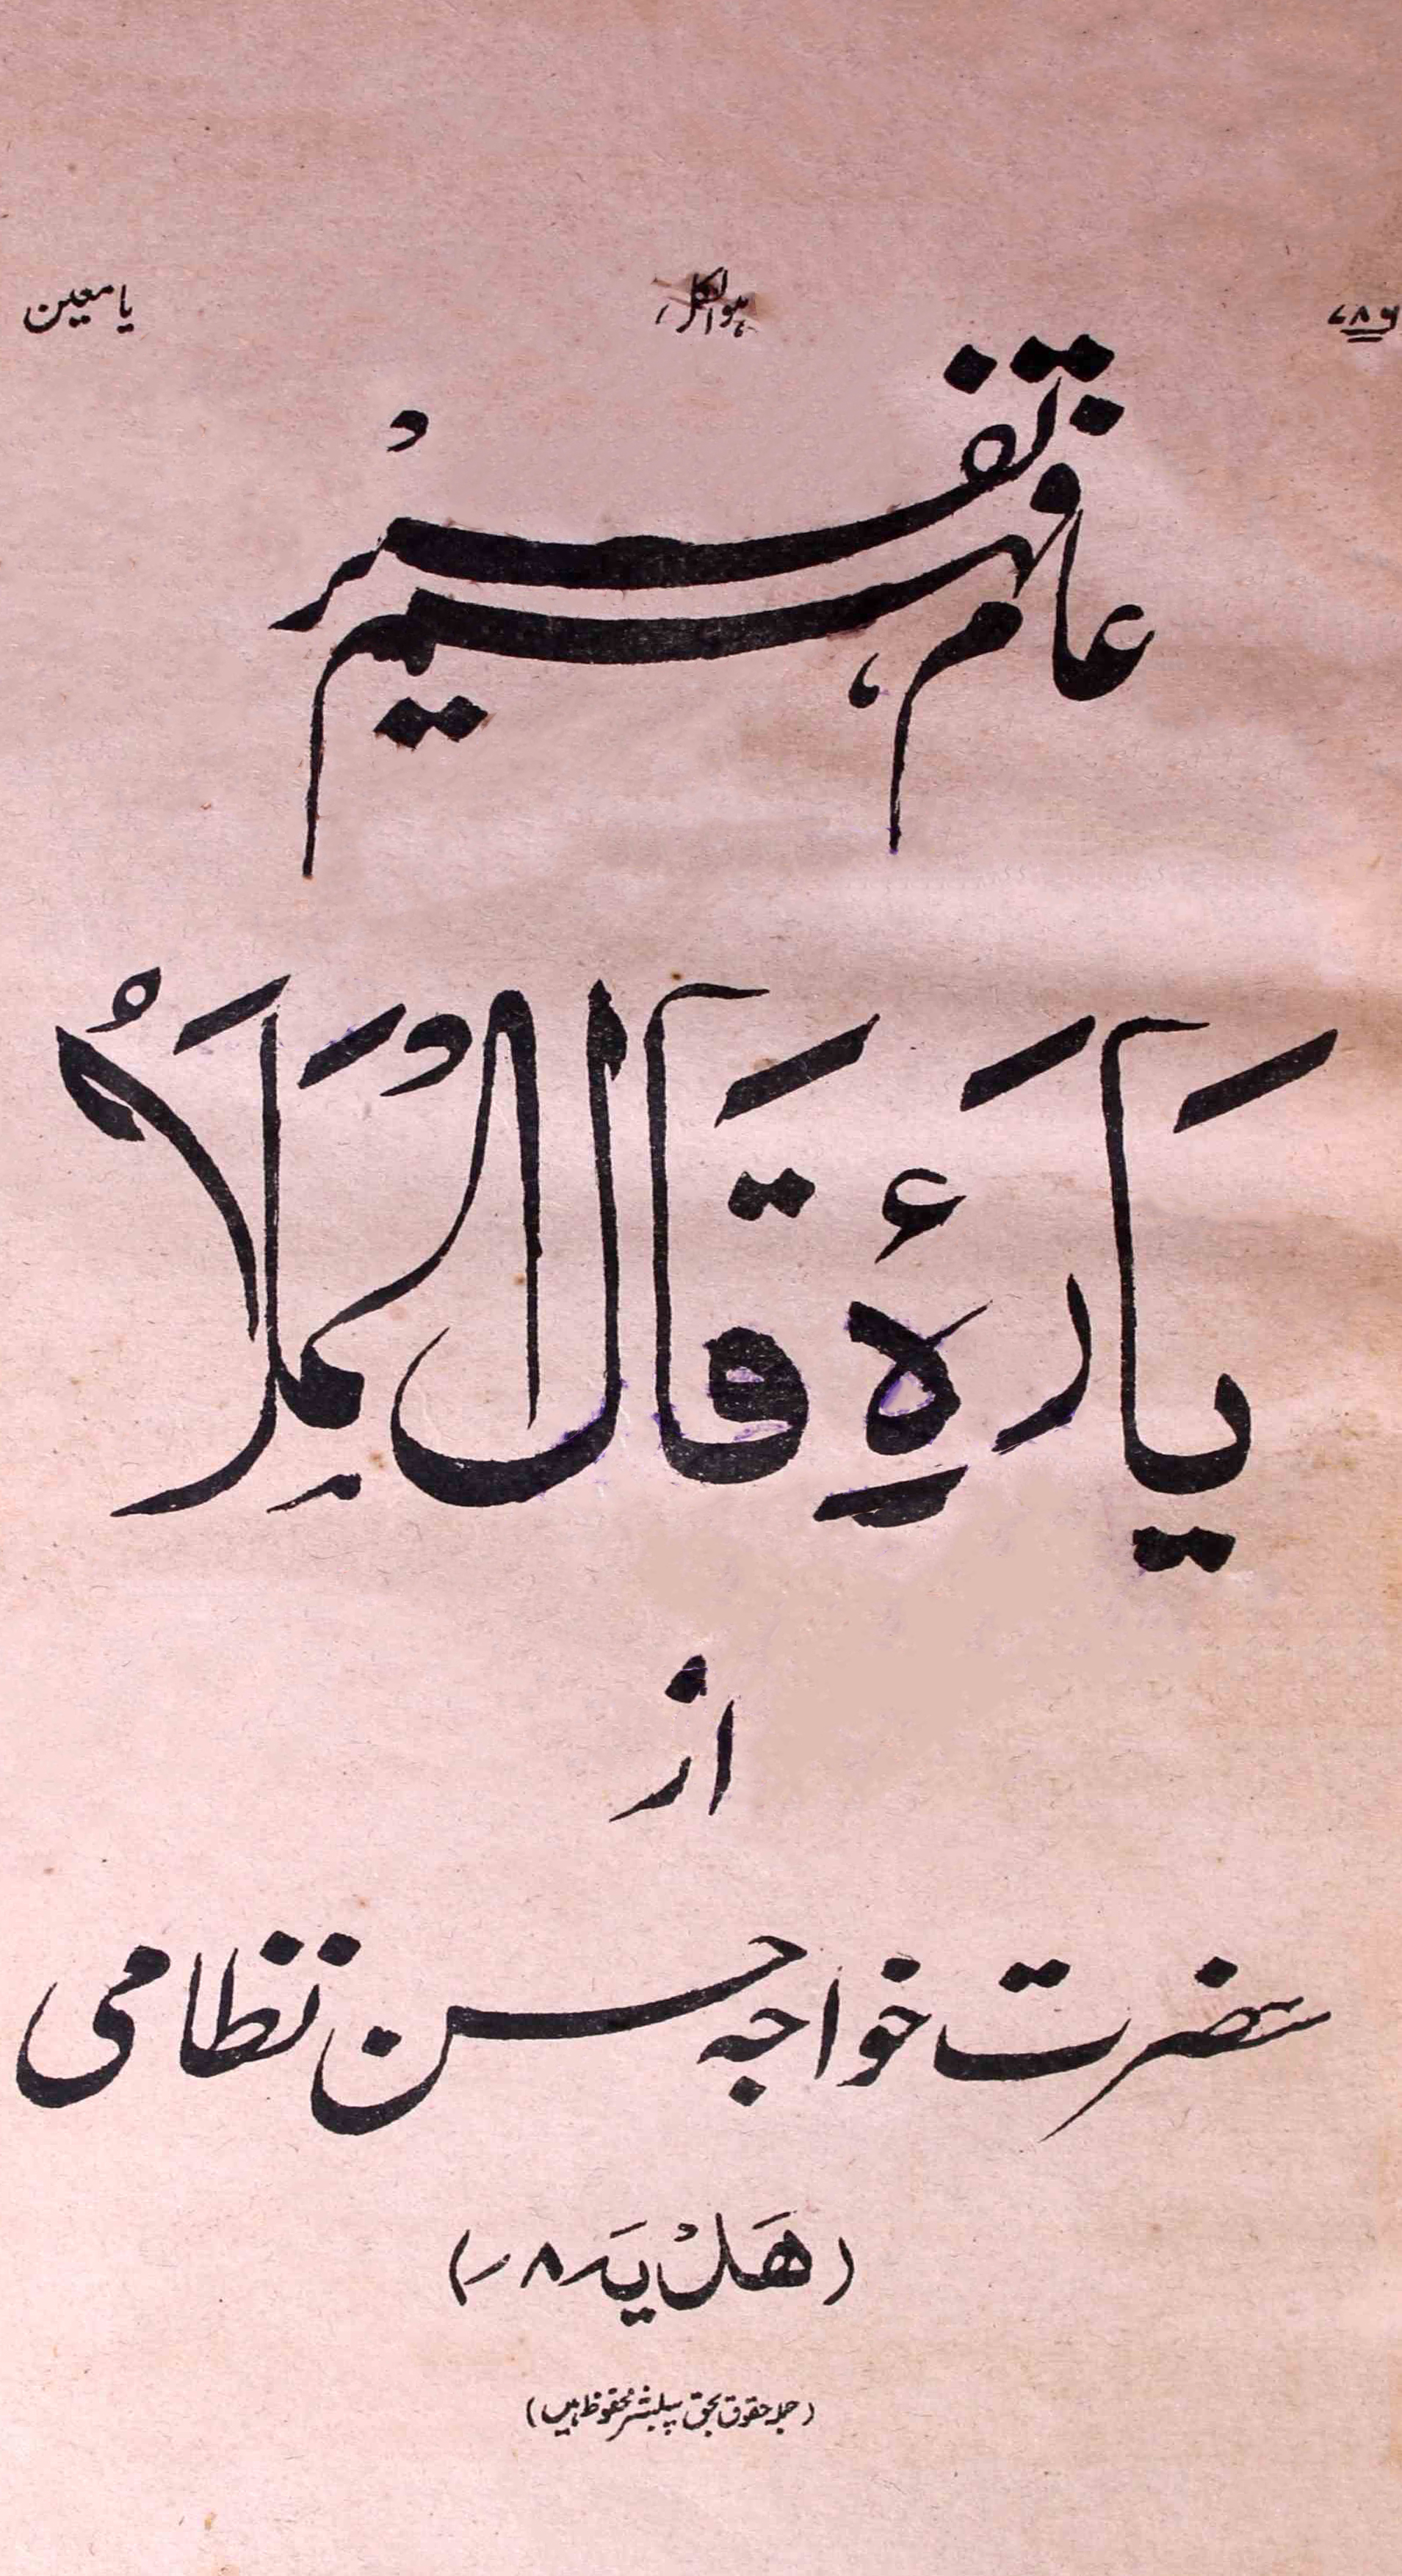 ۷۸۶ ہوالکل یا معین
عام فہم تفسیر
پارۂ قال الملأ
از
حضرت خواجہ حسن نظامی
(ھدیہ ۸ر)
(جملہ حقوق بحق پبلشر محفوظ ہیں)